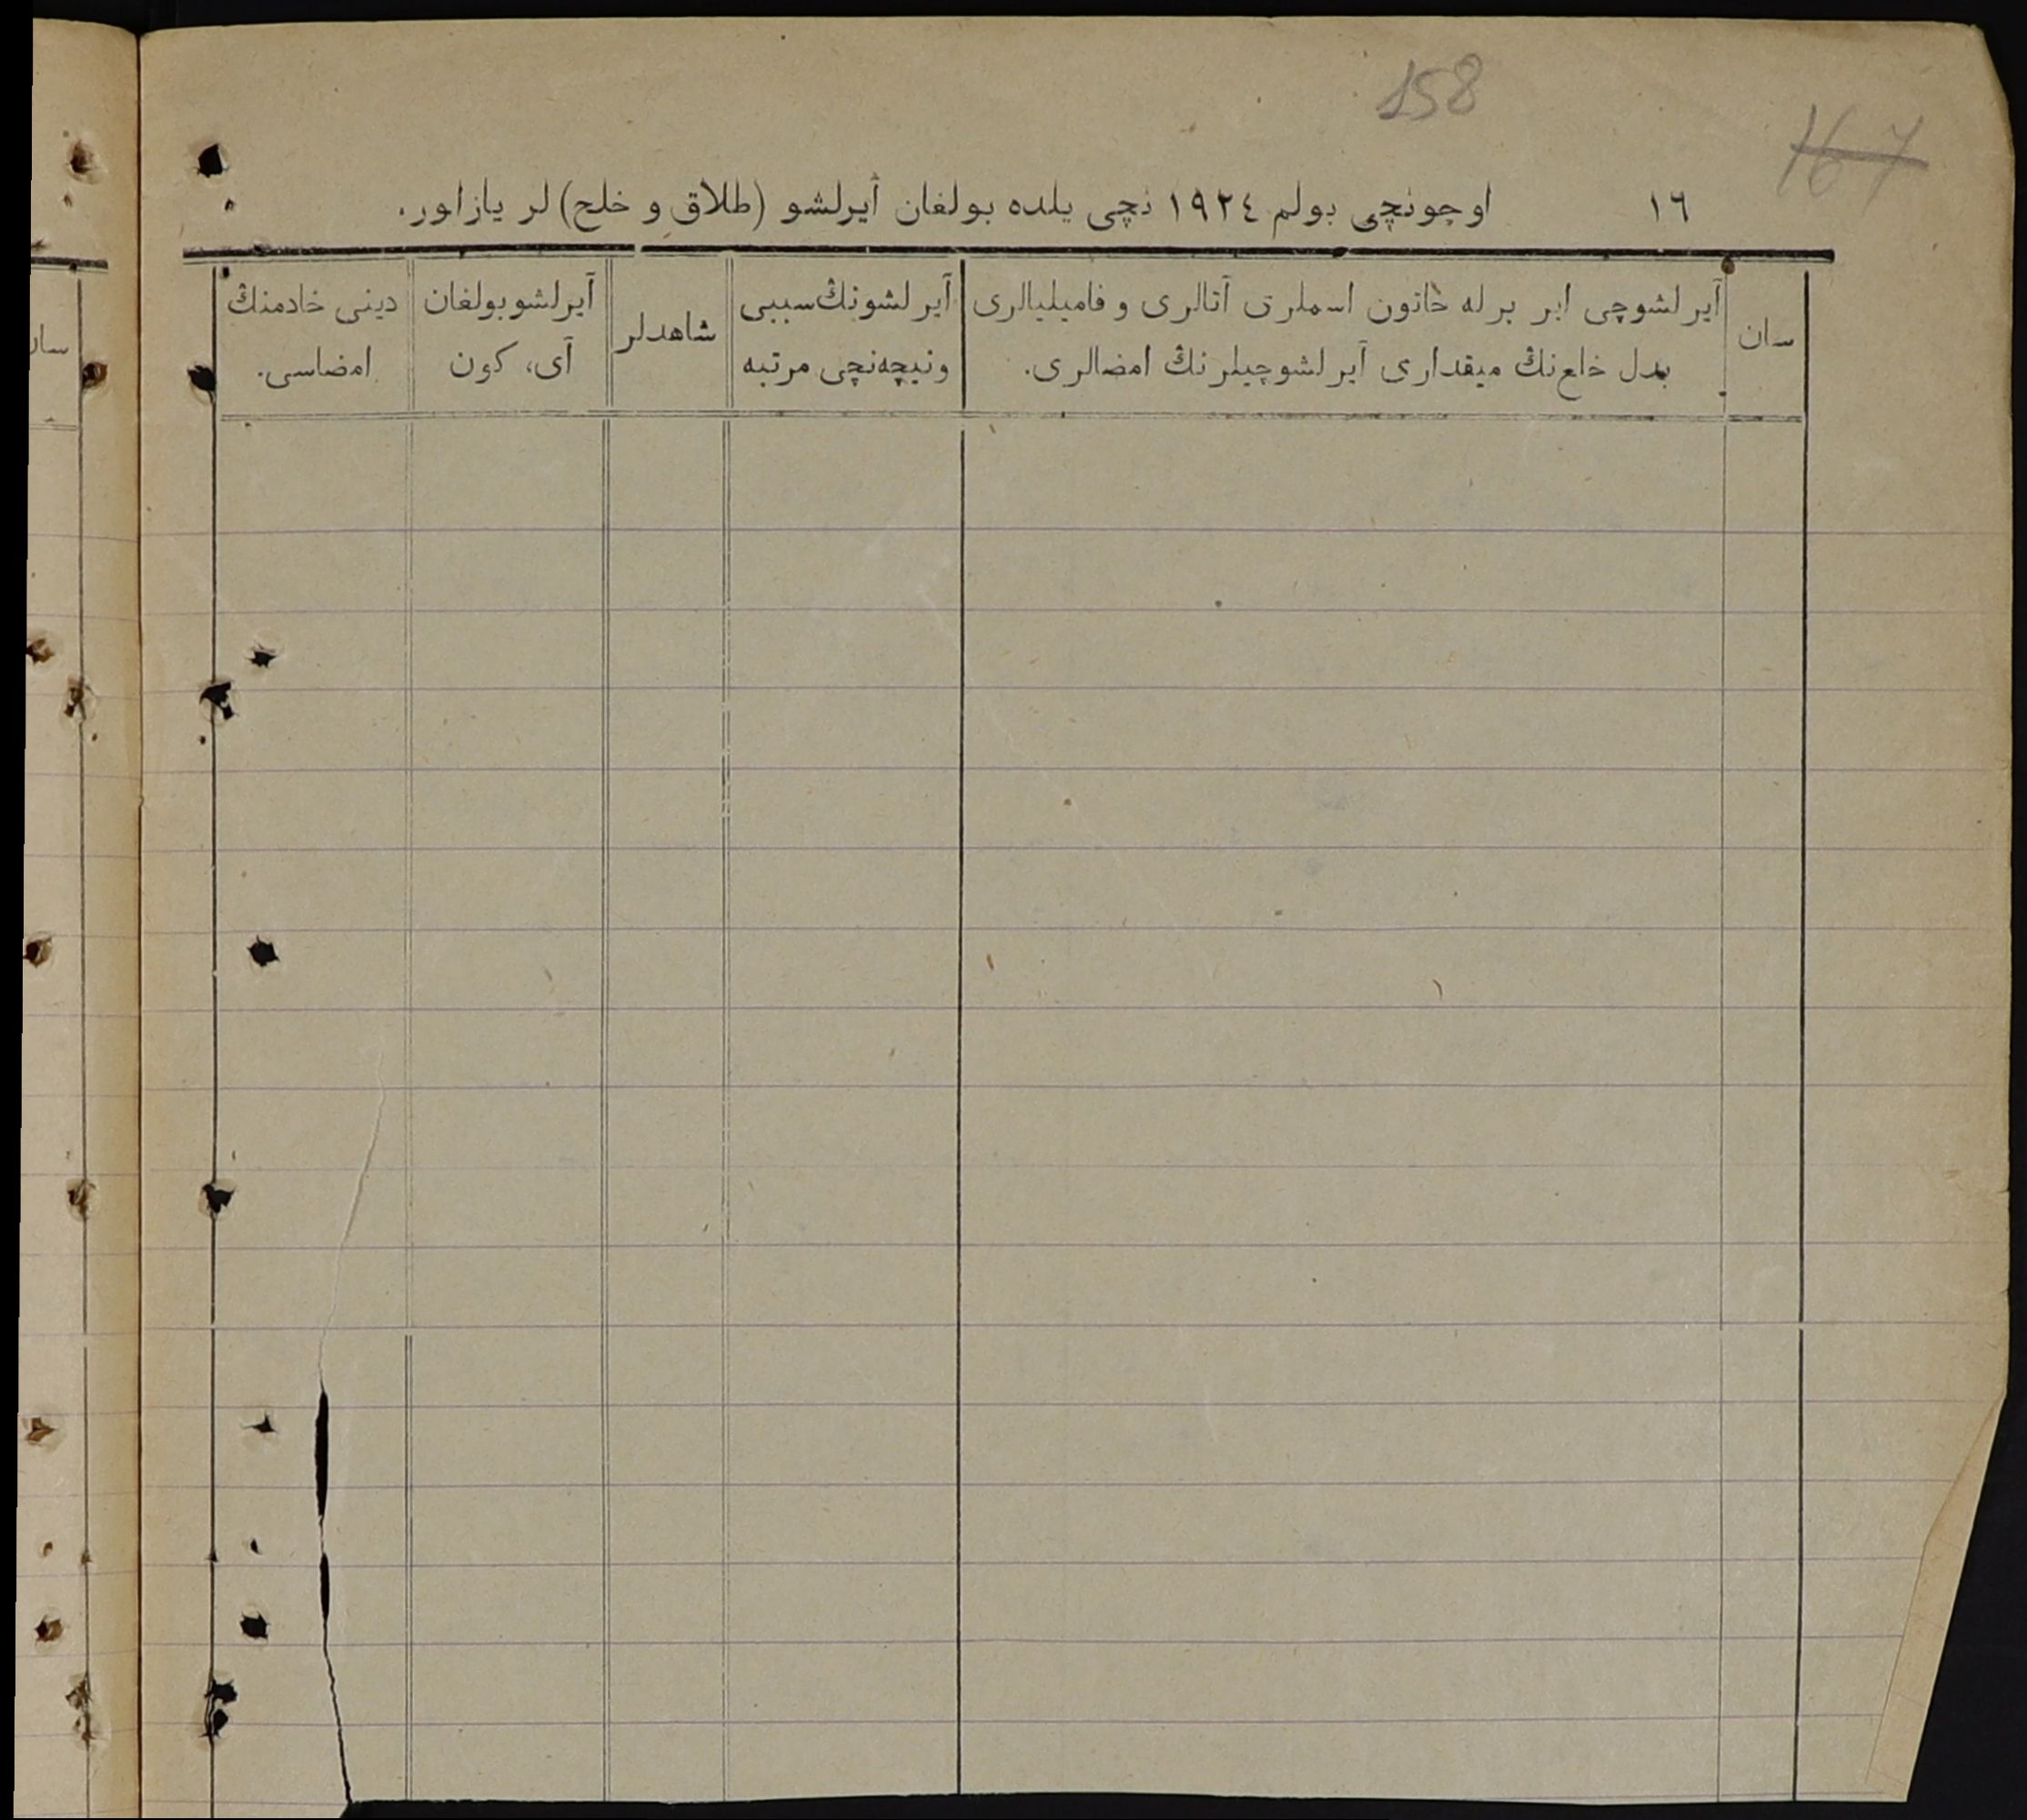 158
167
١٦
اوچونچی بولم ١٩٢٤ نچی یلده بولغان آیرلشو (طلاق و خلح) لر یازلور.
سان
آیرلشوچی ایر برله خاتون اسملری آتالری و فامیلیالری
بدل خلع‌نڭ میقداری آیرلشوچیلرنڭ امضالری.
آیرلشونڭ سببی
ونیچه‌نچی مرتبه
شاهدلر
آیرلشو بولغان
آی، کون
دینی خادمنڭ
امضاسی.
سان